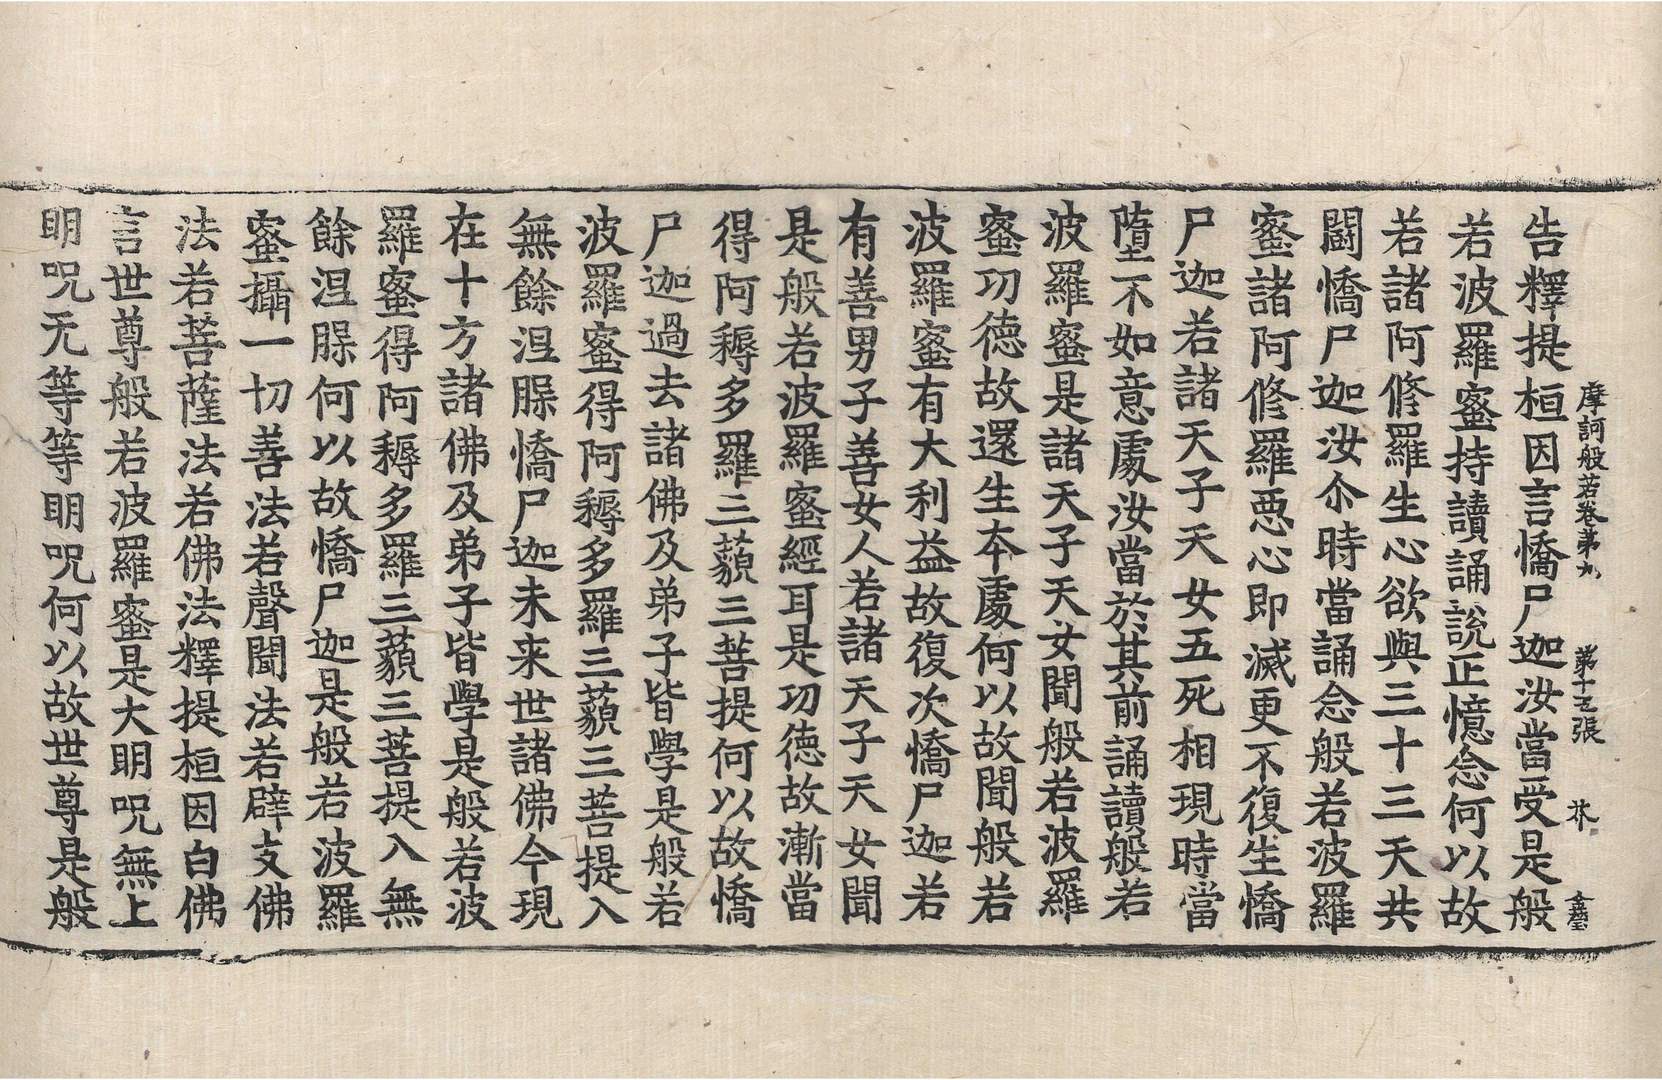 摩訶般若卷第九 第十五張 芥 金瑩
告釋提桓因言憍尸迦汝當受是般
若波羅蜜持讀誦說正憶念何以故
若諸阿修羅生心欲與三十三天共
鬪憍尸迦汝尒時當誦念般若波羅
蜜諸阿修羅惡心即滅更不復生憍
尸迦若諸天子天女五死相現時當
墮不如意處汝當於其前誦讀般若
波羅蜜是諸天子天女聞般若波羅
蜜功德故還生本處何以故聞般若
波羅蜜有大利益故復次憍尸迦若
有善男子善女人若諸天子天女聞
是般若波羅蜜經耳是功德故漸當
得阿耨多羅三藐三菩提何以故憍
尸迦過去諸佛及弟子皆學是般若
波羅蜜得阿耨多羅三藐三菩提入
無餘涅槃憍尸迦未来世諸佛今現
在十方諸佛及弟子皆學是般若波
羅蜜得阿耨多羅三藐三菩提入無
餘涅槃何以故憍尸迦是般若波羅
蜜攝一切善法若聲聞法若辟支佛
法若菩薩法若佛法釋提桓因白佛
言世尊般若波羅蜜是大明呪無上
明呪无等等明呪何以故世尊是般